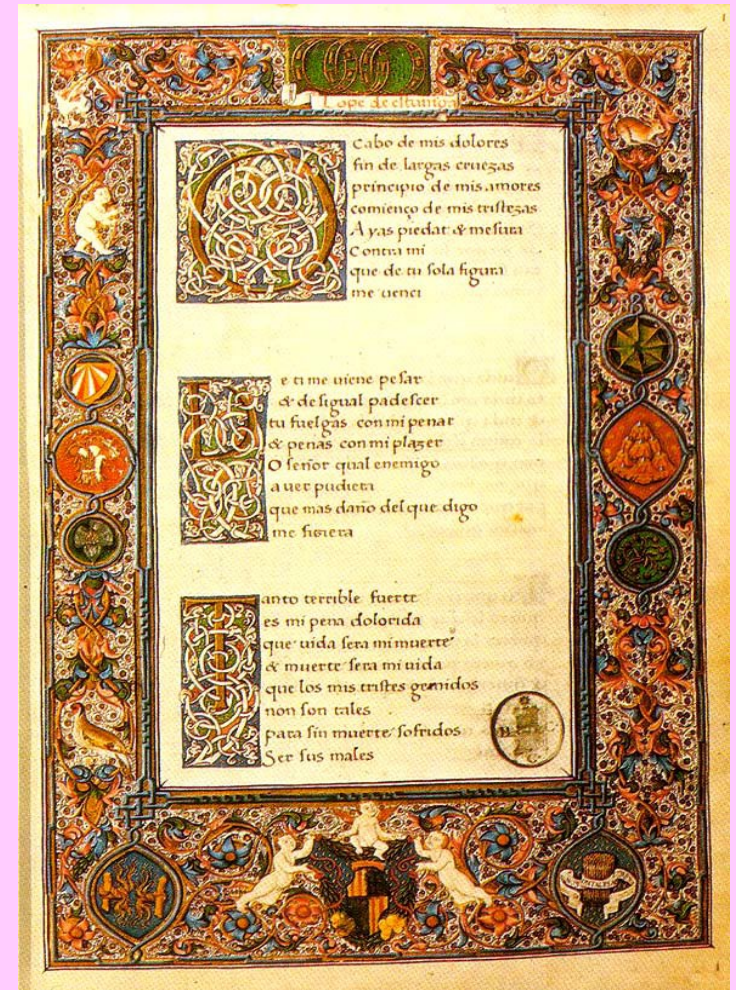 Lope de estuniga
O
Cabo de mis dolores
fin de largas cruezas
principio de mis amores
comienço de mis tristezas
Ayas piedat & mesura
Contra mi
que de tu sola figura
me uenci
De ti me uiene pesar
& desigual padescer
tu fuelgas con mi penar
& penas con mi plazer
O señor qual enemigo
auer pudiera
que mas daño del que digo
me fiziera
Tanto terrible fuerte
es mi pena dolorida
que uida sera mi muerte
& muerte sera mi uida
que los mis tristes gemidos
non son tales
para sin muerte sofridos
Ser sus males
B